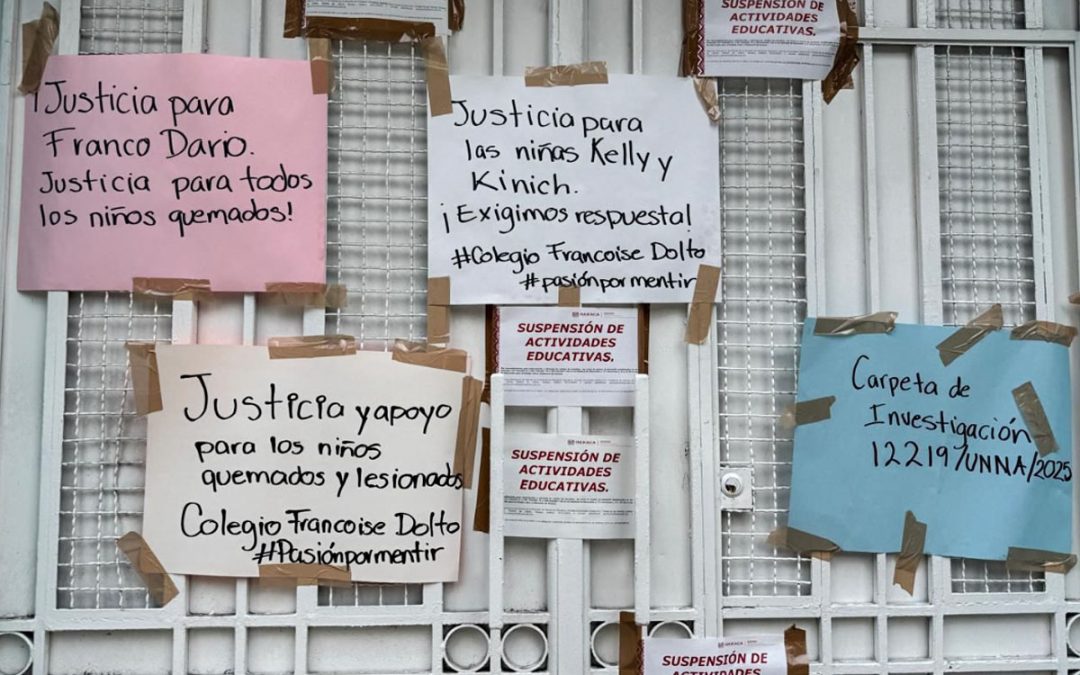 SUSPENSIÓN DE
ACTIVIDADES
EDUCATIVAS.
¡Justicia para
Franco Dario.
Justicia para todos
los niños quemados!
Justicia para
las niñas Kelly y
Kinich.
¡Exigimos respuesta!
#Colegio Francoise Dolto
#pasiónpormentir
OAXACA
SUSPENSIÓN DE
ACTIVIDADES
EDUCATIVAS.
Justicia y apoyo
para los niños
quemados y lesionados
Colegio Francoise Dolto
#Pasiónpormentir
OAXACA
SUSPENSIÓN DE
ACTIVIDADES
EDUCATIVAS.
Carpeta de
Investigación
12219/UNNA/2025
OAXACA
SUSPENSIÓN DE
ACTIVIDADES